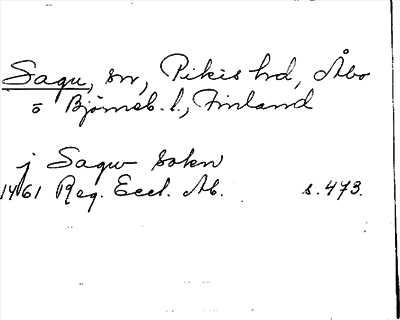 Sagu, sn, Pikis hd, Åbo
o Bjömeb. l., Finland
j Sagw sokn
1461 Reg. Eccl. Ab. s. 473.